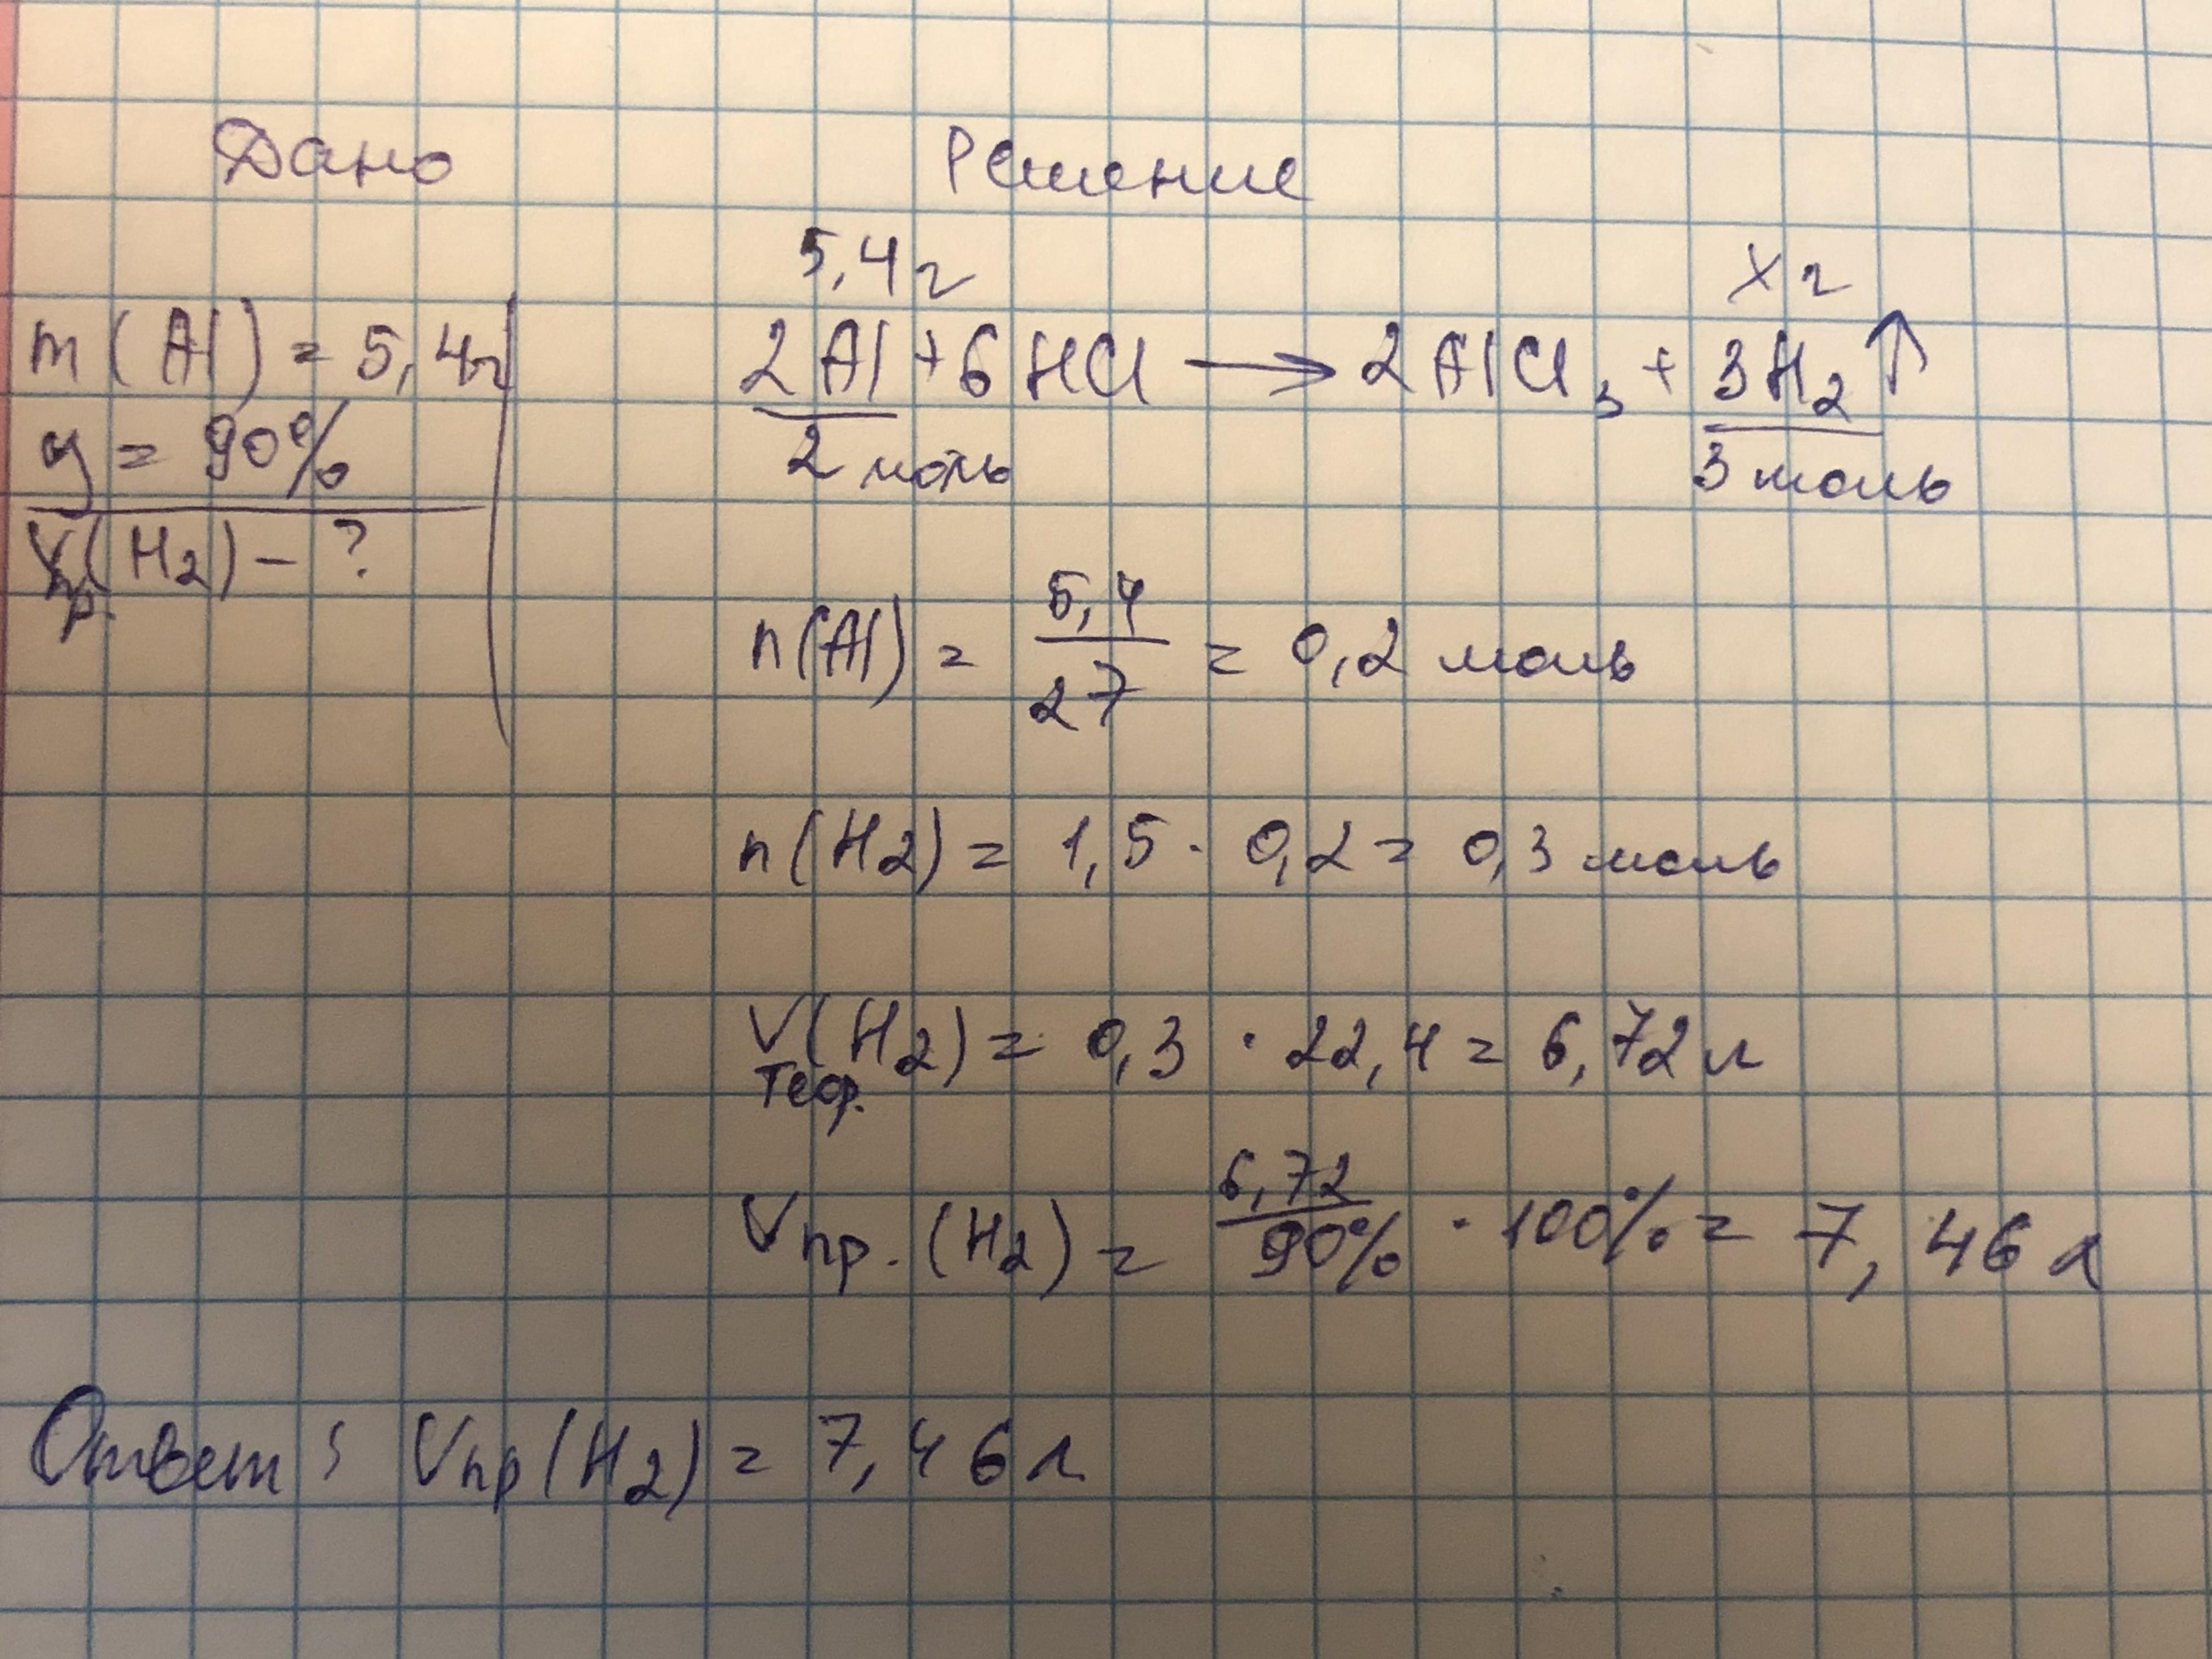 Дано
m(Al) = 5,4г
η = 90%
Vпр.(H2) – ?
Решение
5,4г Xг
2Al + 6HCl → 2AlCl3 + 3H2↑
2 моль 3 моль
n(Al) = 5,4/27 = 0,2 моль
n(H2) = 1,5 · 0,2 = 0,3 моль
Vтеор.(H2) = 0,3 · 22,4 = 6,72 л
Vпр.(H2) = 6,72/90% · 100% = 7,46 л
Ответ: Vпр(H2) = 7,46 л